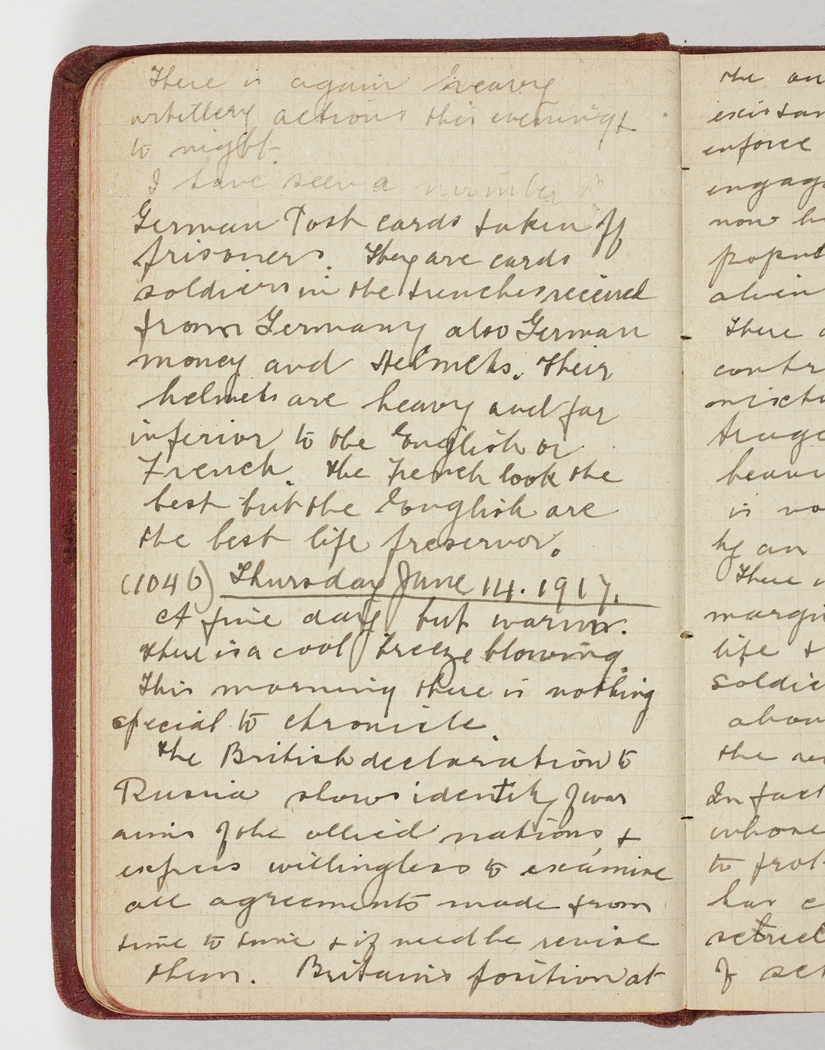 There is again heavy
artillery actions this evening &
to night.
I have seen a number of
German Post cards taken off
prisoners. They are cards
soldiers in the trenches received
from Germany also German
money and Helmets. Their
helmets are heavy and far
inferior to the English or
French. The French look the
best but the English are
the best life preserver.
(1046) Thursday June 14. 1917.
A fine day but warm.
There is a cool breeze blowing
This morning there is nothing
special to chronicle.
The British declaration to
Russia shows identity of war
aims of the allied nations &
express willingless to examine
all agreements made from
time to time & if need be revise
them. Britain's position at
the
enforce
now
There
is
There
life &
the
In fact
whose
to
of